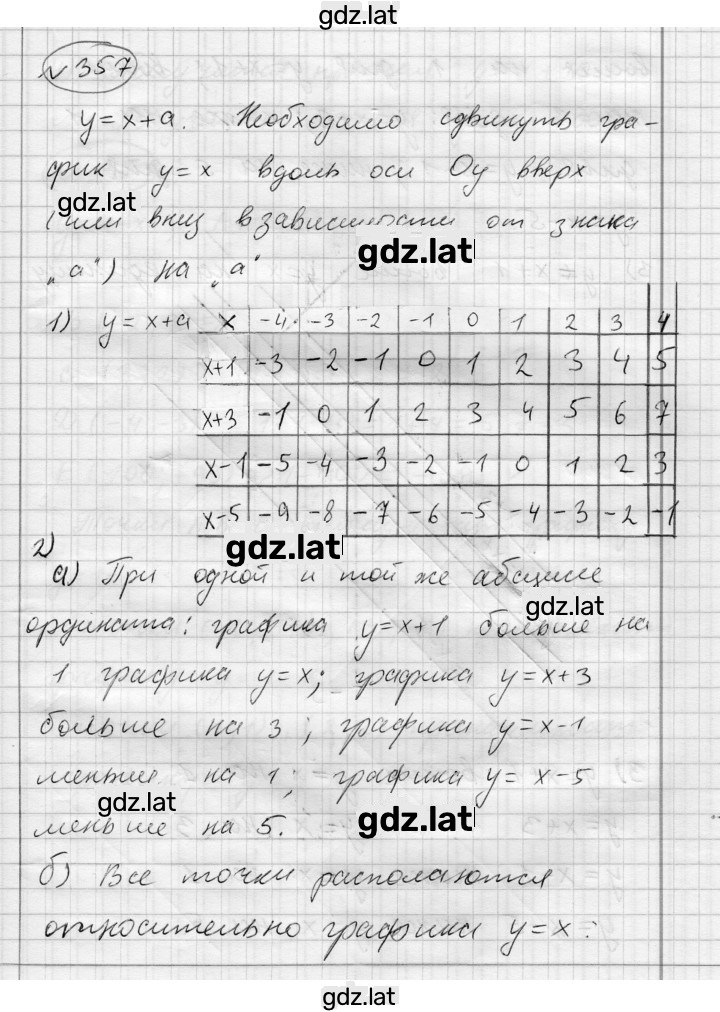 gdz.lat
№357
y=x+a. Необходимо сдвинуть гра-
фик y=x вдоль оси Oy вверх
gdz.lat
(или вниз в зависимости от знака
„a“) на „a“
gdz.lat
1) y=x+a x -4 -3 -2 -1 0 1 2 3 4
x+1 -3 -2 -1 0 1 2 3 4 5
x+3 -1 0 1 2 3 4 5 6 7
x-1 -5 -4 -3 -2 -1 0 1 2 3
x-5 -9 -8 -7 -6 -5 -4 -3 -2 -1
2)
gdz.lat
а) При одной и той же абсциссе
gdz.lat
ордината: графика y=x+1 больше на
1 графика y=x; графика y=x+3
больше на 3; графика y=x-1
меньше на 1; графика y=x-5
gdz.lat
меньше на 5.
gdz.lat
б) Все точки располаются
относительно графика y=x:
gdz.lat